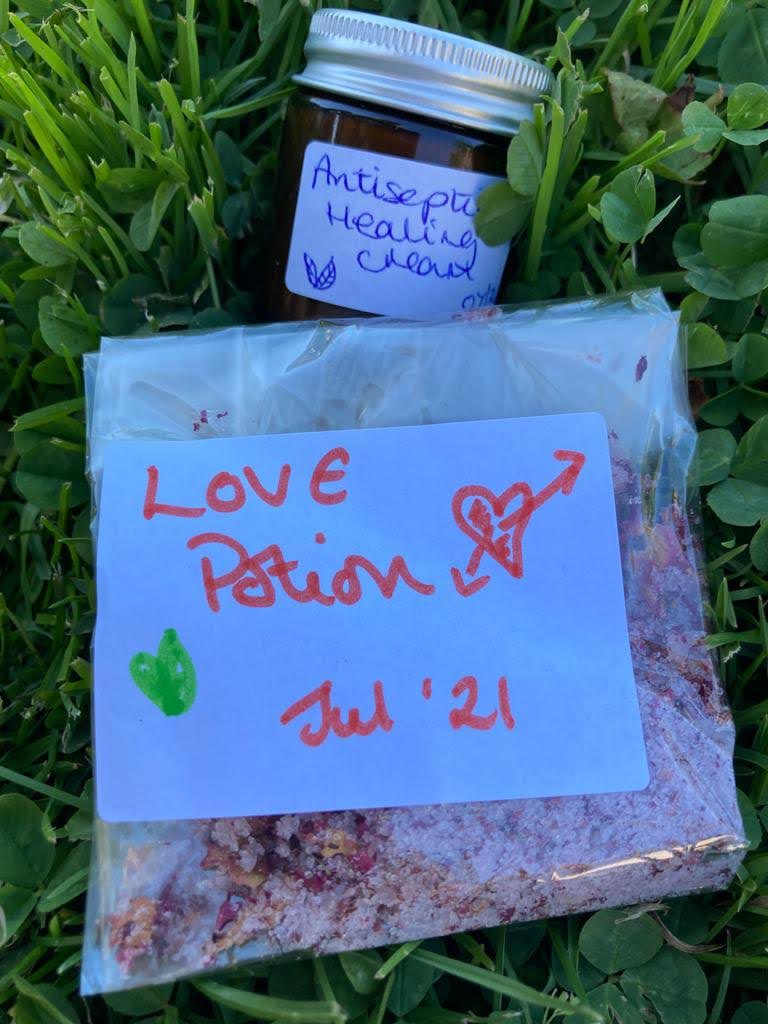 Antisepti
Healing
Cream
Love
Potion
Jul '21